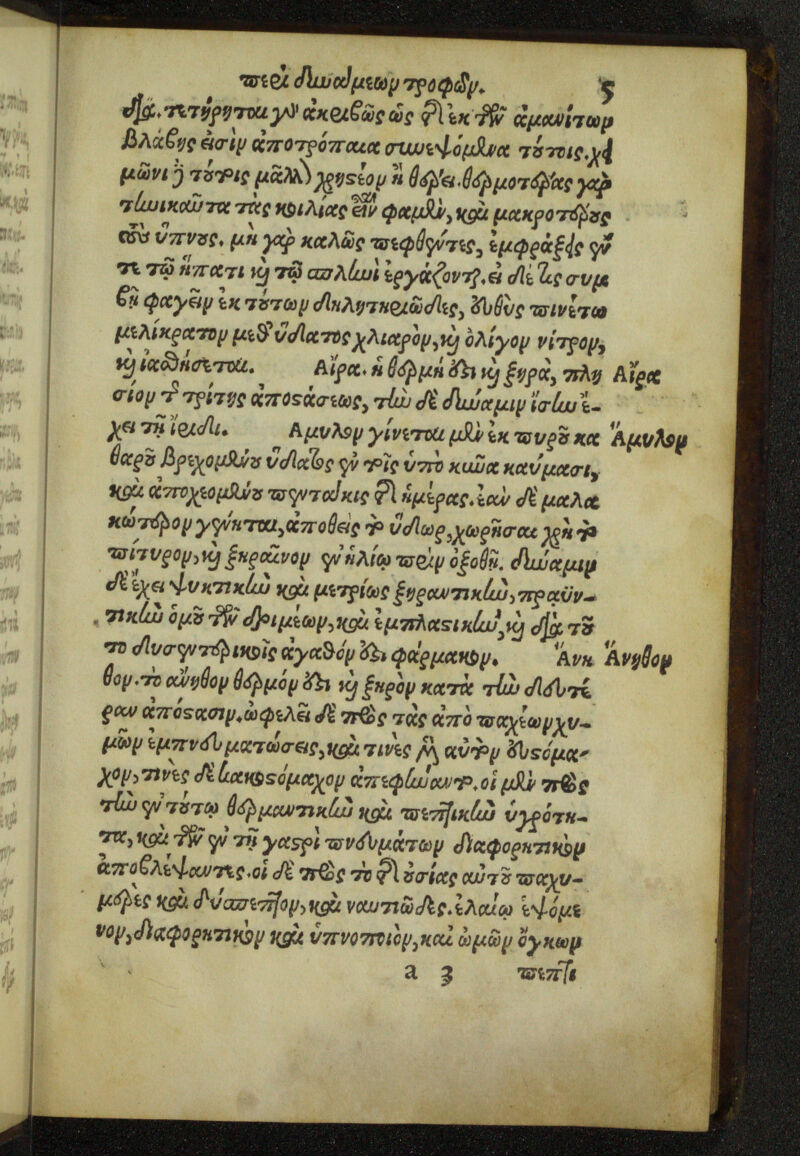 περὶ δυνάμεων τροφῶν. 5
δία. τετήρηται γὰρ ἀκριβῶς ὡς τῆς ἐκ τῶν ἀμανίτων
βλάβης εἰσὶν ἀποτρόπαια συνεψόμενα τούτοις. χει
μῶνι δὲ τούτοις μᾶλλον χρηστέον ἢ θέρει. θερμοτέρας γὰρ
τηνικαῦτα τὰς κοιλίας εἶναι φαμὲν, καὶ μακροτέρους
τοὺς ὕπνους. μὴ γὰρ καλῶς πεφθέντες, ἐμφράξεις ἔν
τε τῷ ἥπατι καὶ τῷ σπληνὶ ἐργάζονται. εἰ δέ τις συμ
βῇ φαγεῖν ἐκ τούτων δηλητηριῶδες, εὐθὺς πινέτω
μελίκρατον μεθ' ὕδατος χλιαρὸν, καὶ ὀλίγον νίτρον,
καὶ ἰαθήσεται. Αἶρα. ἡ θερμή ἐστι καὶ ξηρὰ, πλη Αἶρα
σίον τῆς τρίτης ἀποστάσεως, τὴν δὲ δύναμιν ἴσην ἔ-
χει τῇ ἴριδι. Αμυλον γίνεται μὲν ἐκ πυροῦ κα Ἄμυλον
θαροῦ βρεχομένου ὕδατος ἐν τοῖς ὑπὸ κύνα καύμασι,
καὶ ἀποχεομένου πεντάκις τῆς ἡμέρας. ἐὰν δὲ μαλα
κώτερον γένηται, ἀποθεὶς τὸ ὕδωρ, χωρῆσαι χρὴ τὸ
πίτυρον, καὶ ξηραῖνον ἐν ἡλίῳ πρὶν ὀξοθῇ. δύναμιν
δὲ ἔχει ψυκτικὴν καὶ μετρίως ξηραντικὴν, πραϋν-
τικὴν ὁμοῦ τῶν δριμέων, καὶ ἐμπλαστικὴν, καὶ διὰ τοῦ
το δυσεντερικοῖς ἀγαθόν ἐστι φάρμακον. Ἄνη Ἄνηθον
θον. τὸ ἄνηθον θερμόν ἐστι καὶ ξηρὸν κατὰ τὴν δευτέ
ραν ἀπόστασιν. ὠφελεῖ δὲ πρὸς τὰς ἀπὸ παχέων χυ-
μῶν ἐμπνευματώσεις, καὶ τινὲς μὲν αὐτὸν εὐστόμα-
χον, τινὲς δὲ κακοστόμαχον ἀπεφήναντο. οἱ μὲν πρὸς
τὴν ἐν τούτῳ θερμαντικὴν καὶ πεπτικὴν ὑγρότη-
τα, καὶ τῶν ἐν τῇ γαστρὶ πνευμάτων διαφορητικὸν
ἀποβλέψαντες. οἱ δὲ πρὸς τὸ τῆς οὐσίας αὐτοῦ παχυ-
μερὲς καὶ δύσπεπτον, καὶ ναυτιῶδες. ἐλαίῳ ἑψόμε
νον, διαφορητικὸν καὶ ὑπνοποιὸν, καὶ ὠμῶν ὄγκων
a 3 πεπτι